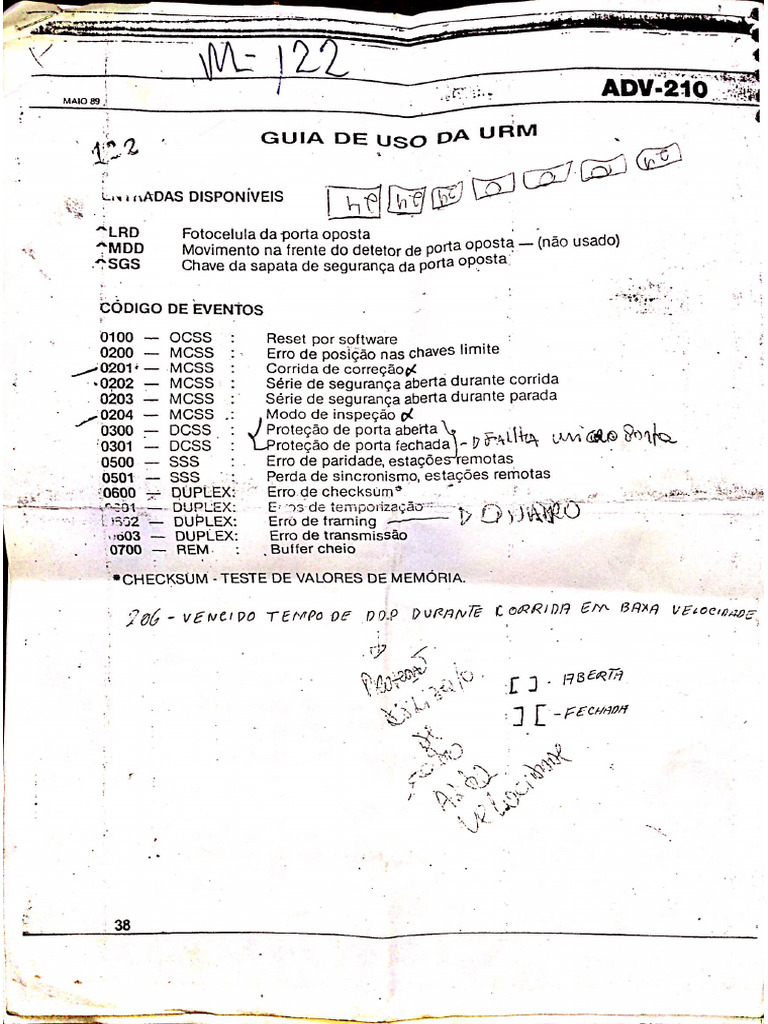 M-122
MAIO 89
ADV-210
122
GUIA DE USO DA URM
ENTRADAS DISPONÍVEIS
^LRD Fotocelula da porta oposta
^MDD Movimento na frente do detetor de porta oposta — (não usado)
^SGS Chave da sapata de segurança da porta oposta
CÓDIGO DE EVENTOS
0100 — OCSS : Reset por software
0200 — MCSS : Erro de posição nas chaves limite
0201 — MCSS : Corrida de correção
0202 — MCSS : Série de segurança aberta durante corrida
0203 — MCSS : Série de segurança aberta durante parada
0204 — MCSS : Modo de inspeção
0300 — DCSS : Proteção de porta aberta
0301 — DCSS : Proteção de porta fechada
0500 — SSS : Erro de paridade, estações remotas
0501 — SSS : Perda de sincronismo, estações remotas
0600 — DUPLEX: Erro de checksum*
0601 — DUPLEX: Erros de temporização
0602 — DUPLEX: Erro de framing
0603 — DUPLEX: Erro de transmissão
0700 — REM : Buffer cheio
*CHECKSUM - TESTE DE VALORES DE MEMÓRIA.
206 - VENCIDO TEMPO DE DDP DURANTE CORRIDA EM BAXA VELOCIDADE
[ ] - ABERTA
] [ - FECHADA
VELOCIDADE
38